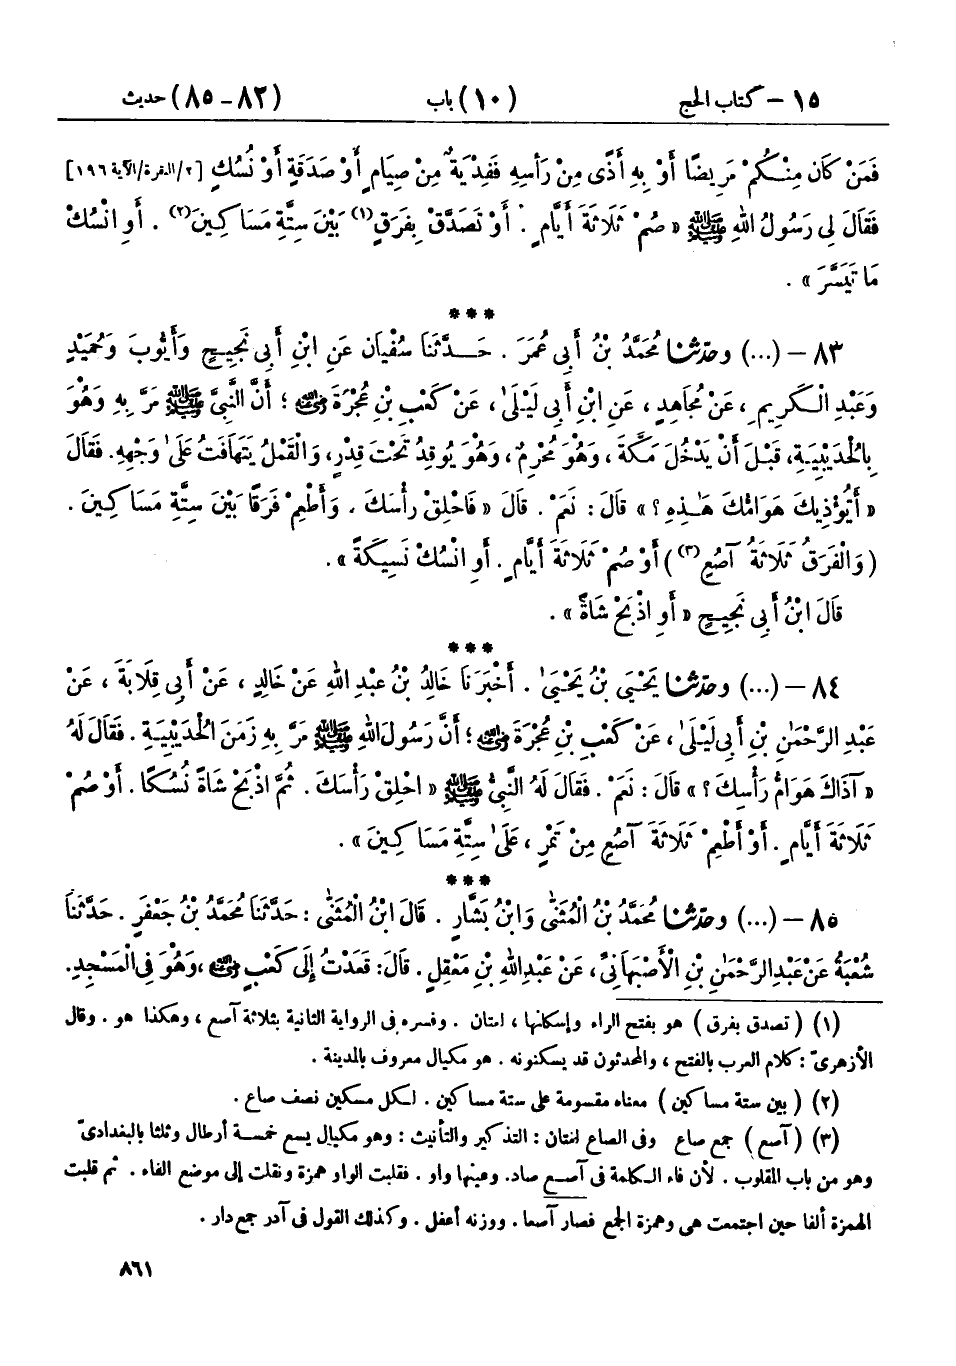 ١٥ - كتاب الحج (١٠) باب (٨٢ - ٨٥) حديث
فَمَنْ كَانَ مِنْكُمْ مَرِيضًا أَوْ بِهِ أَذًى مِنْ رَأْسِهِ فَفِدْيَةٌ مِنْ صِيَامٍ أَوْ صَدَقَةٍ أَوْ نُسُكٍ [٢/البقرة/الآية ١٩٦]
فَقَالَ لِي رَسُولُ اللهِ ﷺ « صُمْ ثَلَاثَةَ أَيَّامٍ . أَوْ تَصَدَّقْ بِفَرَقٍ(١) بَيْنَ سِتَّةِ مَسَاكِينَ(٢) . أَوِ انْسُكْ
مَا تَيَسَّرَ » .
***
٨٣ - (...) وحدثنا مُحَمَّدُ بْنُ أَبِي عُمَرَ . حَدَّثَنَا سُفْيَان عَنِ ابْنِ أَبِي نَجِيحٍ وَأَيُّوبَ وَحُمَيْدٍ
وَعَبْدِ الْكَرِيمِ ، عَنْ مُجَاهِدٍ ، عَنِ ابْنِ أَبِي لَيْلَىٰ ، عَنْ كَعْبِ بْنِ عُجْرَةَ رضي الله عنه ؛ أَنَّ النَّبِيَّ ﷺ مَرَّ بِهِ وَهُوَ
بِالْحُدَيْبِيَةِ، قَبْلَ أَنْ يَدْخُلَ مَكَّةَ ، وَهُوَ مُحْرِمٌ ، وَهُوَ يُوقِدُ تَحْتَ قِدْرٍ، وَالْقَمْلُ يَتَهَافَتُ عَلَىٰ وَجْهِهِ. فَقَالَ
« أَيُؤْذِيكَ هَوَامُّكَ هَٰذِهِ ؟ » قَالَ : نَعَمْ . قَالَ « فَاحْلِقْ رَأْسَكَ . وَأَطْعِمْ فَرَقًا بَيْنَ سِتَّةِ مَسَاكِينَ .
( وَالْفَرَقُ ثَلَاثَةُ آصُعٍ(٣) ) أَوْ صُمْ ثَلَاثَةَ أَيَّامٍ . أَوِ انْسُكْ نَسِيكَةً » .
قَالَ ابْنُ أَبِي نَجِيحٍ « أَوِ اذْبَحْ شَاةً » .
***
٨٤ - (...) وحدثنا يَحْيَىٰ بْنُ يَحْيَىٰ . أَخْبَرَنَا خَالِدُ بْنُ عَبْدِ اللهِ عَنْ خَالِدٍ ، عَنْ أَبِي قِلَابَةَ ، عَنْ
عَبْدِ الرَّحْمَٰنِ بْنِ أَبِي لَيْلَىٰ ، عَنْ كَعْبِ بْنِ عُجْرَةَ رضي الله عنه ؛ أَنَّ رَسُولَ اللهِ ﷺ مَرَّ بِهِ زَمَنَ الْحُدَيْبِيَةِ . فَقَالَ لَهُ
« آذَاكَ هَوَامُّ رَأْسِكَ ؟ » قَالَ : نَعَمْ . فَقَالَ لَهُ النَّبِيُّ ﷺ « احْلِقْ رَأْسَكَ . ثُمَّ اذْبَحْ شَاةً نُسُكًا . أَوْ صُمْ
ثَلَاثَةَ أَيَّامٍ . أَوْ أَطْعِمْ ثَلَاثَةَ آصُعٍ مِنْ تَمْرٍ ، عَلَىٰ سِتَّةِ مَسَاكِينَ » .
***
٨٥ - (...) وحدثنا مُحَمَّدُ بْنُ الْمُثَنَّىٰ وَابْنُ بَشَّارٍ . قَالَ ابْنُ الْمُثَنَّىٰ : حَدَّثَنَا مُحَمَّدُ بْنُ جَعْفَرٍ . حَدَّثَنَا
شُعْبَةُ عَنْ عَبْدِ الرَّحْمَٰنِ بْنِ الْأَصْبَهَانِيِّ، عَنْ عَبْدِ اللهِ بْنِ مَعْقِلٍ . قَالَ: قَعَدْتُ إِلَىٰ كَعْبٍ رضي الله عنه ، وَهُوَ فِي الْمَسْجِدِ.
(١) ( تصدق بفرق ) هو بفتح الراء وإسكانها ، لغتان . وفسره فى الرواية الثانية بثلاثة آصع ، وهكذا هو . وقال
الأزهرىّ : كلام العرب بالفتح ، والمحدثون قد يسكنونه . هو مكيال معروف بالمدينة .
(٢) ( بين ستة مساكين ) معناه مقسومة على ستة مساكين . لكل مسكين نصف صاع .
(٣) ( آصع ) جمع صاع وفى الصاع لغتان : التذكير والتأنيث : وهو مكيال يسع خمسة أرطال وثلثا بالبغدادىّ
وهو من باب المقلوب . لأن فاء الكلمة فى آصع صاد. وعينها واو . فقلبت الواو همزة ونقلت إلى موضع الفاء . ثم قلبت
الهمزة ألفا حين اجتمعت هى وهمزة الجمع فصار آصعا . ووزنه أعفل . وكذلك القول فى آدر جمع دار .
٨٦١